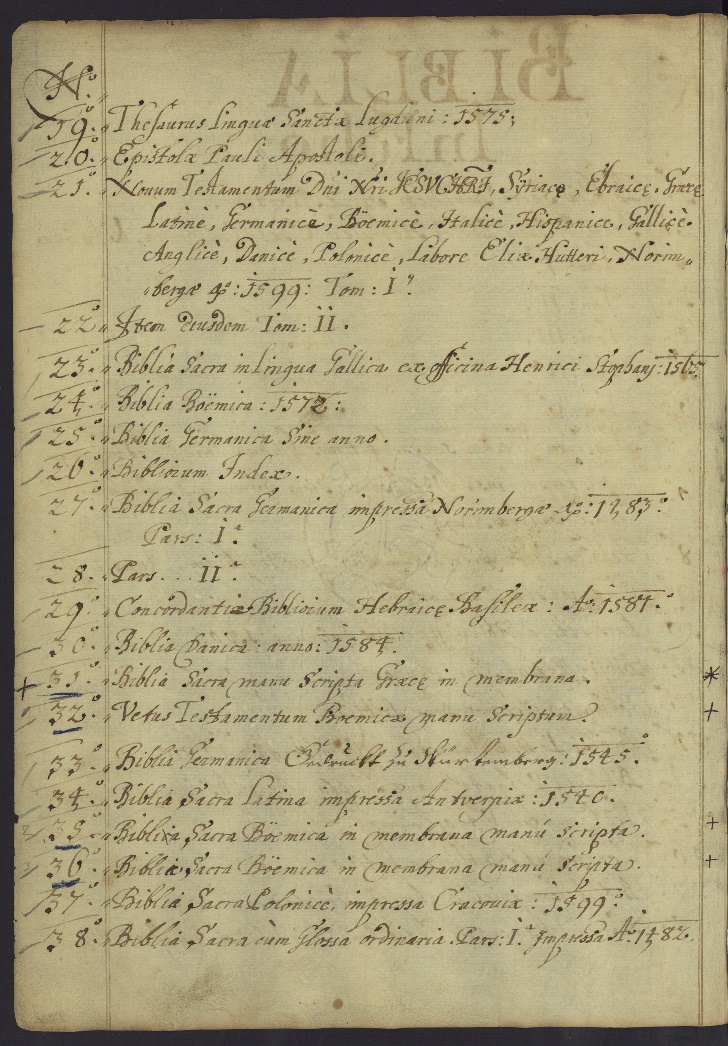 N.º
19. Thesaurus Linguæ Sanctæ Lugduni: 1575;
20. Epistolæ Pauli Apostoli.
21. Novum Testamentum Dni Nri IESV CHRI, Syriacę, Ebraicę, Græcę
Latinè, Germanicè, Böemicè, Italicè, Hispanicè, Gallicè.
Anglicè, Danicè, Polonicè, Labore Eliæ Hutteri, Norim„
„bergæ aº: 1599: Tom: I.
22. Item eiusdem Tom: II.
23. Biblia Sacra in lingua Gallica ex officina Henrici Stephanj: 1565.
24. Biblia Boëmica: 1572:
25. Biblia Germanica Sine anno.
26. Bibliorum Index.
27. Biblia Sacra Germanica impressa Norimbergæ aº: 1483.
Pars: I.
28. Pars... II.
29. Concordantiæ Bibliorum Hebraicę Basileæ: Aº: 1581.
30. Biblia Danica: anno: 1584.
+ 31. Biblia Sacra manu Scripta Græcę in membrana. *
32. Vetus Testamentum Boemicæ manu Scriptum. +
33. Biblia Germanica Gedruckt zu Würtemberg: 1545.
34. Biblia Sacra Latina impressa Antverpiæ: 1540.
35. Biblia Sacra Böemica in membrana manú scripta. +
36. Biblia Sacra Böemica in membrana manú scripta. +
37. Biblia Sacra Polonicè, impressa Cracoviæ: 1599.
38. Biblia Sacra cùm Glossa ordinaria. Pars: I. Impressa Aº: 1482.
BIBLIA